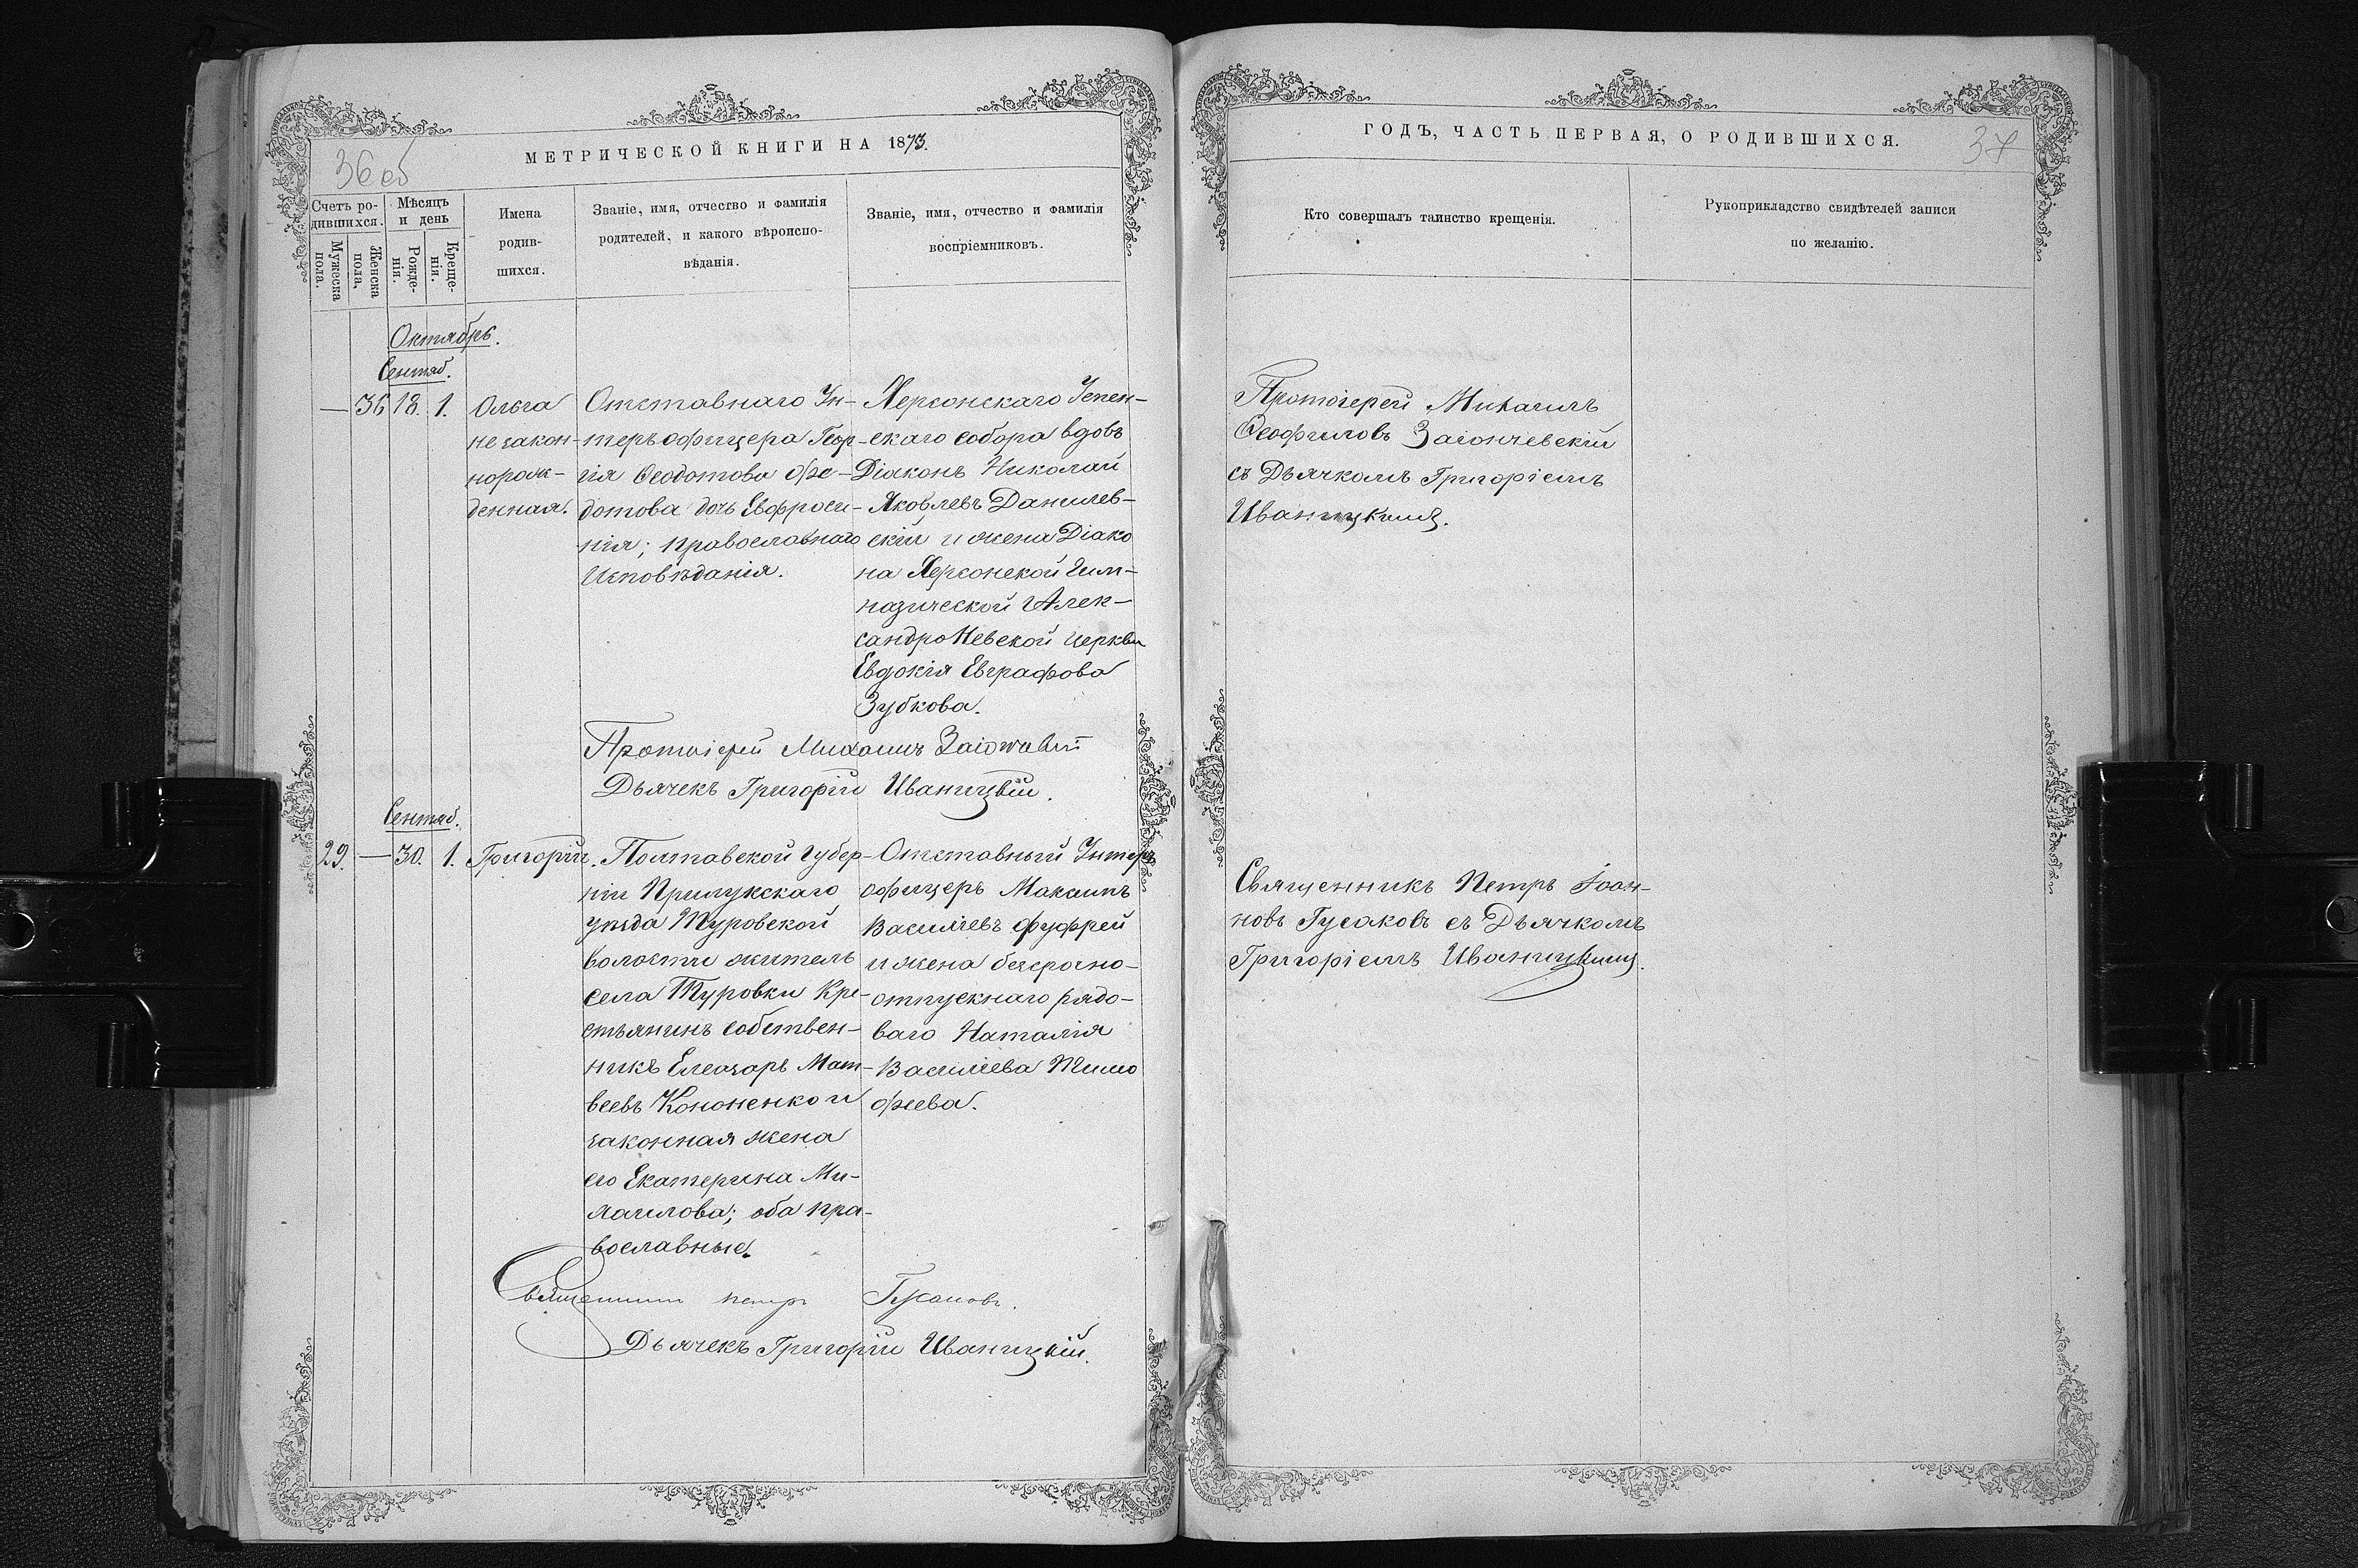 МЕТРИЧЕСКОЙ КНИГИ НА 1873.
36 об
Счетъ ро-
дившихся.
Мужеска
пола.
Женска
пола,
Мѣсяцъ
и день
Рожде-
нія.
Креще-
нія.
Имена
родив-
шихся.
Званіе, имя, отчество и фамилія
родителей, и какого вѣроиспо-
вѣданія.
Званіе, имя, отчество и фамилія
воспріемниковъ.
Октябрь.
Сентяб.
— 36 18. 1.
Ольга
незакон-
норож-
денная.
Отставнаго Ун-
теръ офицера Геор-
гія Ѳеодотова Фе-
дотова дочь Евфроси-
нія; православнаго
Исповѣданія.
Херсонскаго Успен-
скаго собора вдовъ
Діаконъ Николай
Яковлевъ Данилев-
скій и жена Діако
на Херсонской Гим-
назической Алек-
сандроНевской Церкви
Евдокія Евграфова
Зубкова.
Протоіерей Михаилъ
Дьячекъ Григорій Иваницкій.
Сентяб.
29. — 30. 1.
Григорій.
Полтавской губер-
ніи Прилукскаго
уѣзда Туровской
волости житель
села Туровки Кре-
стьянинъ собствен-
никъ Елеазаръ Мат-
веевъ Кононенко и
законная жена
его Екатерина Ми-
хаилова; оба пра-
вославные.
Отставный Унтеръ
офицеръ Максимъ
Василіевъ Фуфрей
и жена безсрочно-
отпускнаго рядо-
ваго Наталія
Василіева Тимо
феева.
Священникъ Петръ Гусаковъ.
Дьячекъ Григорій Иваницкій.
ГОДЪ, ЧАСТЬ ПЕРВАЯ, О РОДИВШИХСЯ.
37
Кто совершалъ таинство крещенія.
Рукоприкладство свидѣтелей записи
по желанію.
Протоіерей Михаилъ
Ѳеофиловъ Заіончевскій
съ Дьячкомъ Григоріемъ
Иваницкимъ.
Священникъ Петръ Іоан-
новъ Гусаковъ съ Дьячкомъ
Григоріемъ Иваницкимъ.